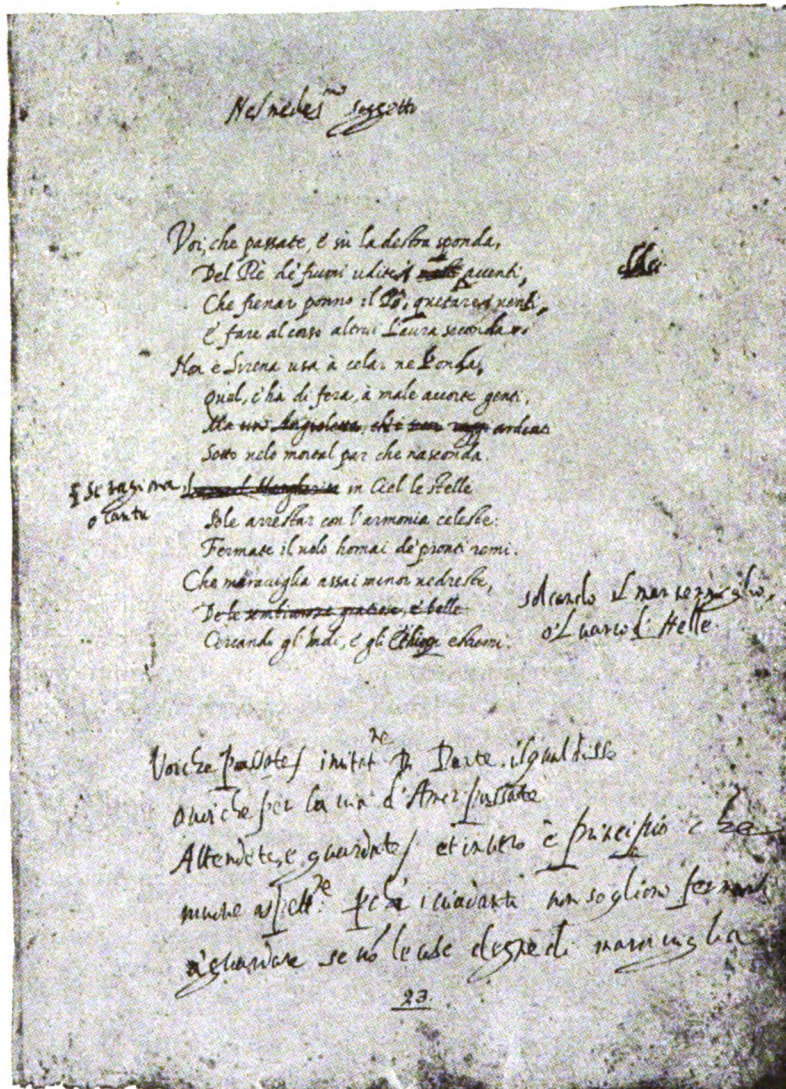 Nel medes^mo soggetto
Voi, che passate, e sù la destra sponda,
Del Rè de' fiumi udite i accenti,
Che frenar ponno il Pò, quetare i venti,
E fare al corso altrui L'aura seconda
Non è Sirena usa à celar ne L'onda,
Quel, c'hà di fera, à male accorte genti,
Ma uno Angioletta, ardenti
Sotto velo mortal par che nasconda.
in Ciel le stelle
o canta
Sole arrestar con l'armonia celeste:
Fermate il volo homai de' pronti remi.
Che maraviglia assai minor vedreste,
De le sembianze graziose, e belle
solcando il mar vermiglio,
o'l varco d'Helle
Cercando gl'Indi, e gli Ethiopi estremi.
Voi che passate/ imitat^ne di Dante. il qual disse
O voi che per la via d'Amor passate
Attendete, e guardate/ et in vero è principio che
muove aspett^ne. perche i viandanti non sogliono fermarsi
à guardare se nō le cose degne di maraviglia
23.